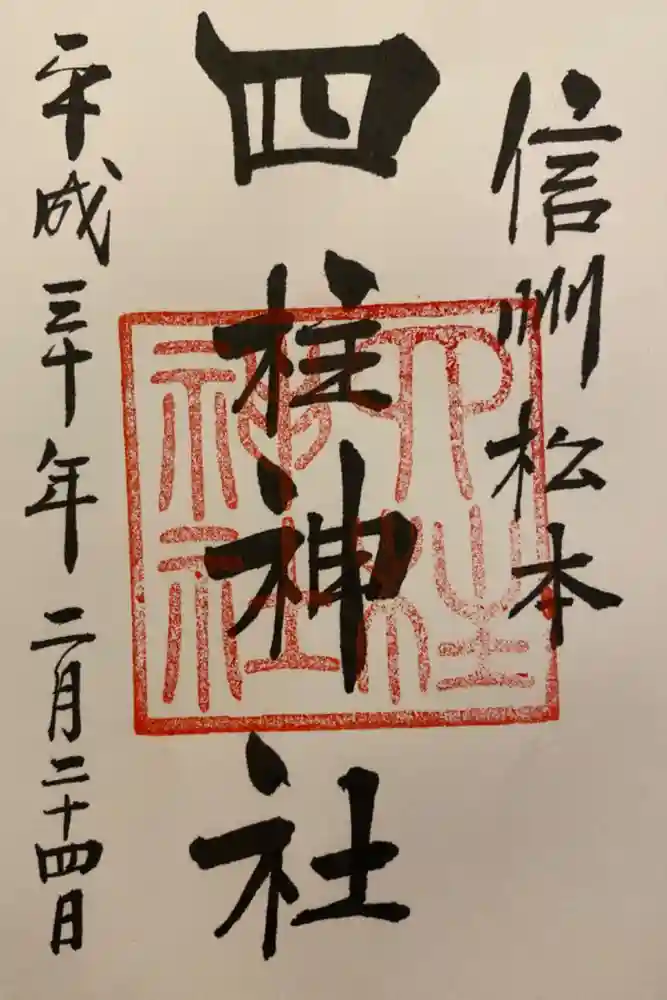 信州松本
四柱神社
平成三十年二月二十四日
四柱
神社